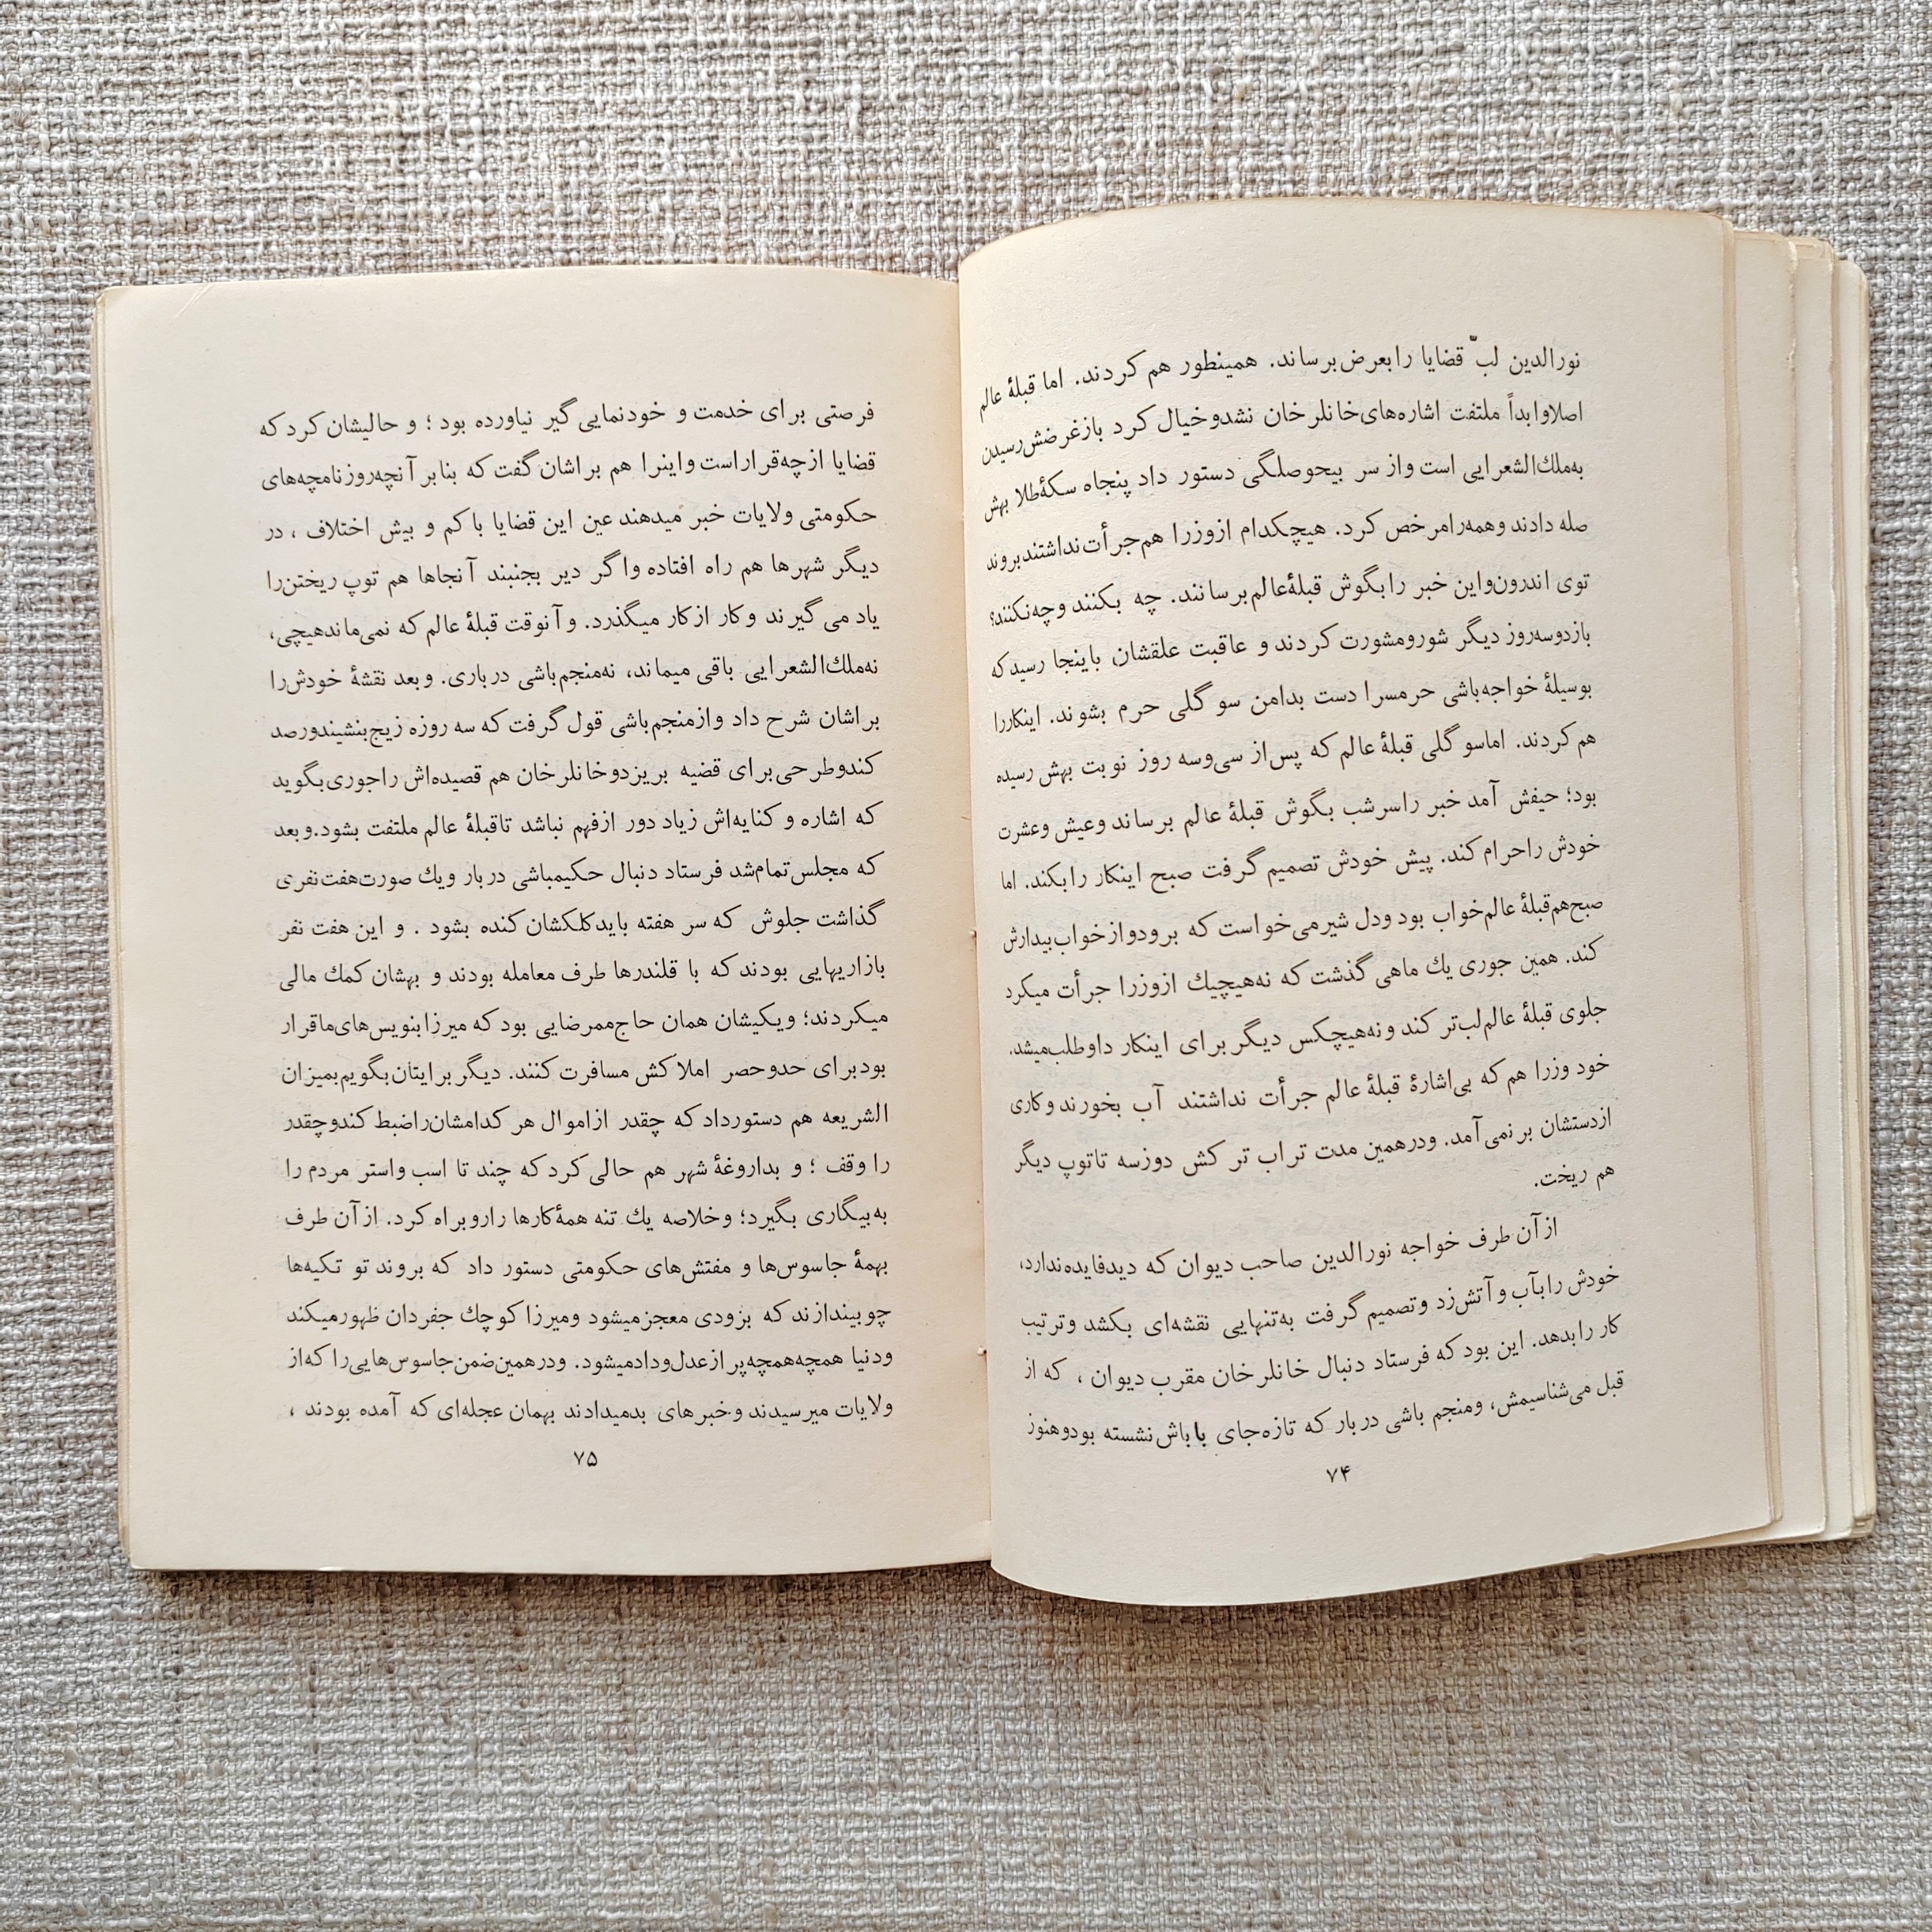 نورالدین لبّ قضایا را بعرض برساند. همینطور هم کردند. اما قبلهٔ عالم
اصلاوابداً ملتفت اشاره‌های خانلرخان نشد و خیال کرد باز غرضش رسیدن
به ملك‌الشعرایی است و از سر بیحوصلگی دستور داد پنجاه سکهٔ طلا بهش
صله دادند و همه را مرخص کرد. هیچکدام از وزرا هم جرأت نداشتند بروند
توی اندرون و این خبر را بگوش قبلهٔ عالم برسانند. چه بکنند و چه نکنند؟
باز دوسه روز دیگر شور و مشورت کردند و عاقبت علقشان باینجا رسید که
بوسیلهٔ خواجه‌باشی حرمسرا دست بدامن سوگلی حرم بشوند. اینکاررا
هم کردند. اما سوگلی قبلهٔ عالم که پس از سی‌وسه روز نوبت بهش رسیده
بود؛ حیفش آمد خبر را سرشب بگوش قبلهٔ عالم برساند و عیش و عشرت
خودش را حرام کند. پیش خودش تصمیم گرفت صبح اینکار را بکند. اما
صبح هم قبلهٔ عالم خواب بود و دل شیر می‌خواست که برود و از خواب بیدارش
کند. همین جوری یك ماهی گذشت که نه هیچیك از وزرا جرأت میکرد
جلوی قبلهٔ عالم لب تر کند و نه هیچکس دیگر برای اینکار داوطلب میشد.
خود وزرا هم که بی‌اشارهٔ قبلهٔ عالم جرأت نداشتند آب بخورند و کاری
از دستشان بر نمی‌آمد. و در همین مدت تراب ترکش دوز سه تا توپ دیگر
هم ریخت.
از آن طرف خواجه نورالدین صاحب دیوان که دید فایده ندارد،
خودش را بآب و آتش زد و تصمیم گرفت به تنهایی نقشه‌ای بکشد و ترتیب
کار را بدهد. این بود که فرستاد دنبال خانلرخان مقرب دیوان ، که از
قبل می‌شناسیمش، و منجم باشی دربار که تازه جای باباش نشسته بود و هنوز
۷۴
فرصتی برای خدمت و خودنمایی گیر نیاورده بود ؛ و حالیشان کرد که
قضایا از چه قرار است و اینرا هم براشان گفت که بنابر آنچه روزنامچه‌های
حکومتی ولایات خبر میدهند عین این قضایا با کم و بیش اختلاف ، در
دیگر شهرها هم راه افتاده و اگر دیر بجنبند آنجاها هم توپ ریختن را
یاد می‌گیرند و کار از کار میگذرد. و آنوقت قبلهٔ عالم که نمی‌ماند هیچی،
نه ملك‌الشعرایی باقی میماند، نه منجم‌باشی درباری. و بعد نقشهٔ خودش را
براشان شرح داد و از منجم‌باشی قول گرفت که سه روزه زیج بنشیند و رصد
کند و طرحی برای قضیه بریزد و خانلرخان هم قصیده‌اش را جوری بگوید
که اشاره و کنایه‌اش زیاد دور از فهم نباشد تا قبلهٔ عالم ملتفت بشود. و بعد
که مجلس تمام شد فرستاد دنبال حکیمباشی دربار و یك صورت هفت نفری
گذاشت جلوش که سر هفته باید کلکشان کنده بشود . و این هفت نفر
بازاریهایی بودند که با قلندرها طرف معامله بودند و بهشان کمك مالی
میکردند؛ و یکیشان همان حاج ممرضایی بود که میرزا بنویس‌های ما قرار
بود برای حدوحصر املاکش مسافرت کنند. دیگر برایتان بگویم بمیزان
الشریعه هم دستور داد که چقدر از اموال هر کدامشان را ضبط کند و چقدر
را وقف ؛ و بداروغهٔ شهر هم حالی کرد که چند تا اسب و استر مردم را
به بیگاری بگیرد؛ و خلاصه یك تنه همهٔ کارها را روبراه کرد. از آن طرف
بهمهٔ جاسوس‌ها و مفتش‌های حکومتی دستور داد که بروند تو تکیه‌ها
چو بیندازند که بزودی معجز میشود و میرزا کوچك جفردان ظهور میکند
و دنیا همچه همچه پر از عدل و داد میشود. و در همین ضمن جاسوس‌هایی را که از
ولایات میرسیدند و خبرهای بد میدادند بهمان عجله‌ای که آمده بودند ،
۷۵